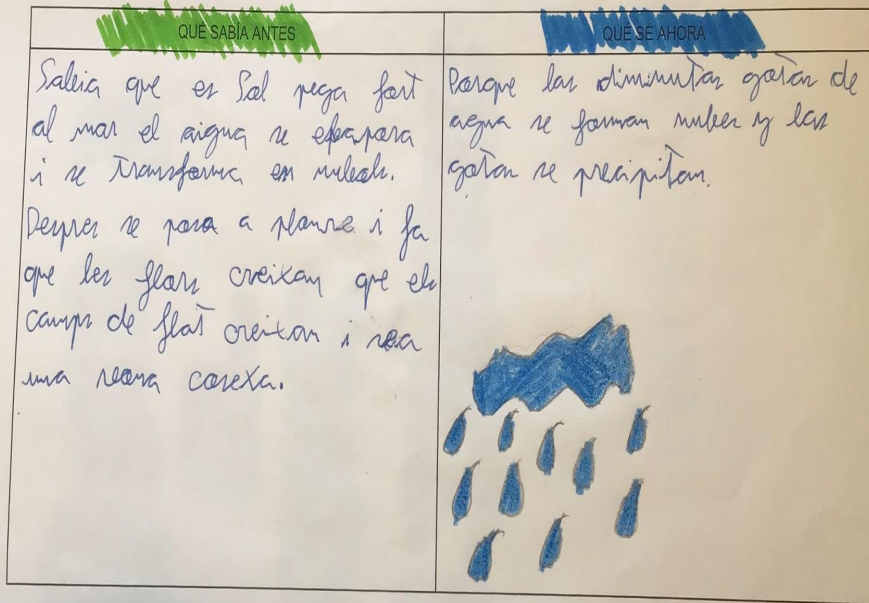 QUÉ SABÍA ANTES
Sabia que es Sol pega fort
al mar el aigua se ebapora
i se transforma en nubols.
Despres se posa a ploure i fa
que les flors creixan que els
camps de blat creixan i sea
una bona cosexa.
QUÉ SÉ AHORA
Porque las diminutas gotas de
agua se forman nubes y las
gotas se precipitan.